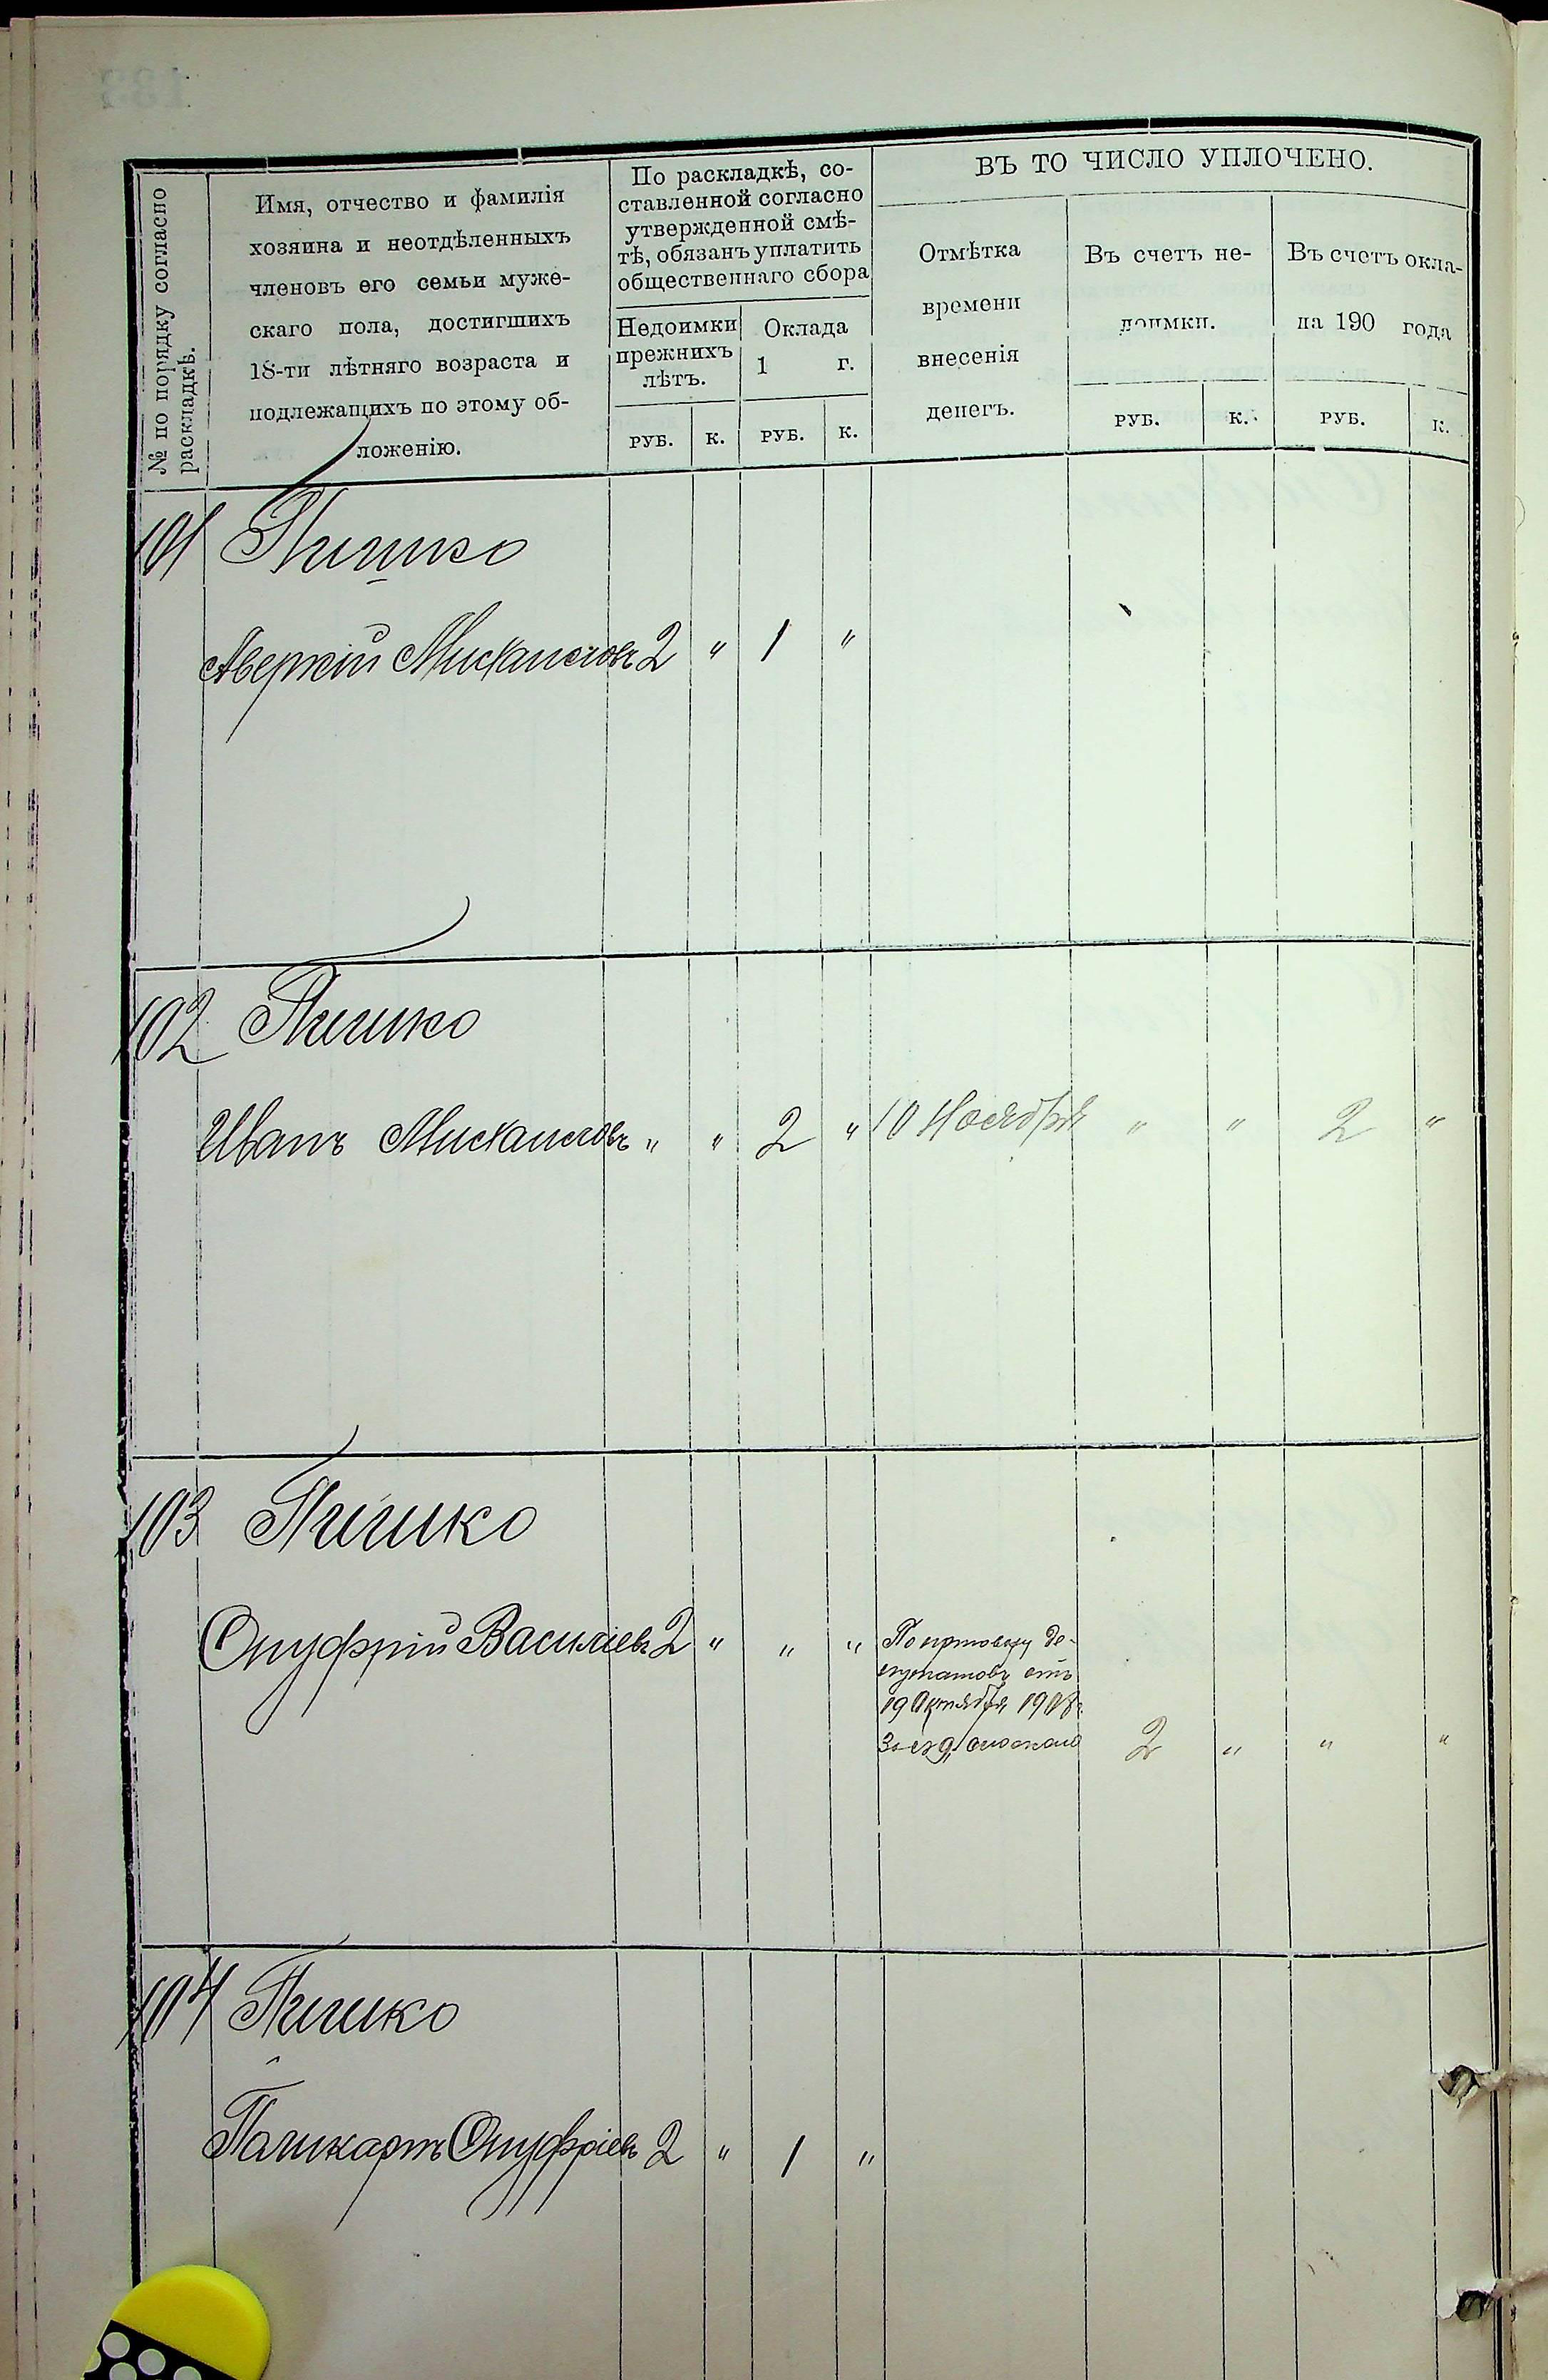 № по порядку согласно
раскладкѣ.
Имя, отчество и фамилія
хозяина и неотдѣленныхъ
членовъ его семьи муже-
скаго пола, достигшихъ
18-ти лѣтняго возраста и
подлежащихъ по этому об-
ложенію.
По раскладкѣ, со-
ставленной согласно
утвержденной смѣ-
тѣ, обязанъ уплатить
общественнаго сбора
Недоимки
прежнихъ
лѣтъ.
Оклада
1 г.
РУБ. К. РУБ. К.
ВЪ ТО ЧИСЛО УПЛОЧЕНО.
Отмѣтка
времени
внесенія
денегъ.
Въ счетъ не-
доимки.
Въ счетъ окла-
да 190 года
РУБ. К. РУБ. К.
101 Пишко
Аверкій Михаиловъ 2 " 1 "
102 Пишко
Иванъ Михаиловъ " " 2 " 10 Ноября " " 2 "
103 Пишко
Онуфрій Василіевъ 2 " " "
По приговору де-
путатовъ отъ
19 Октября 1908г.
2 " " "
104 Пишко
Поликарпъ Онуфріевъ 2 " 1 "